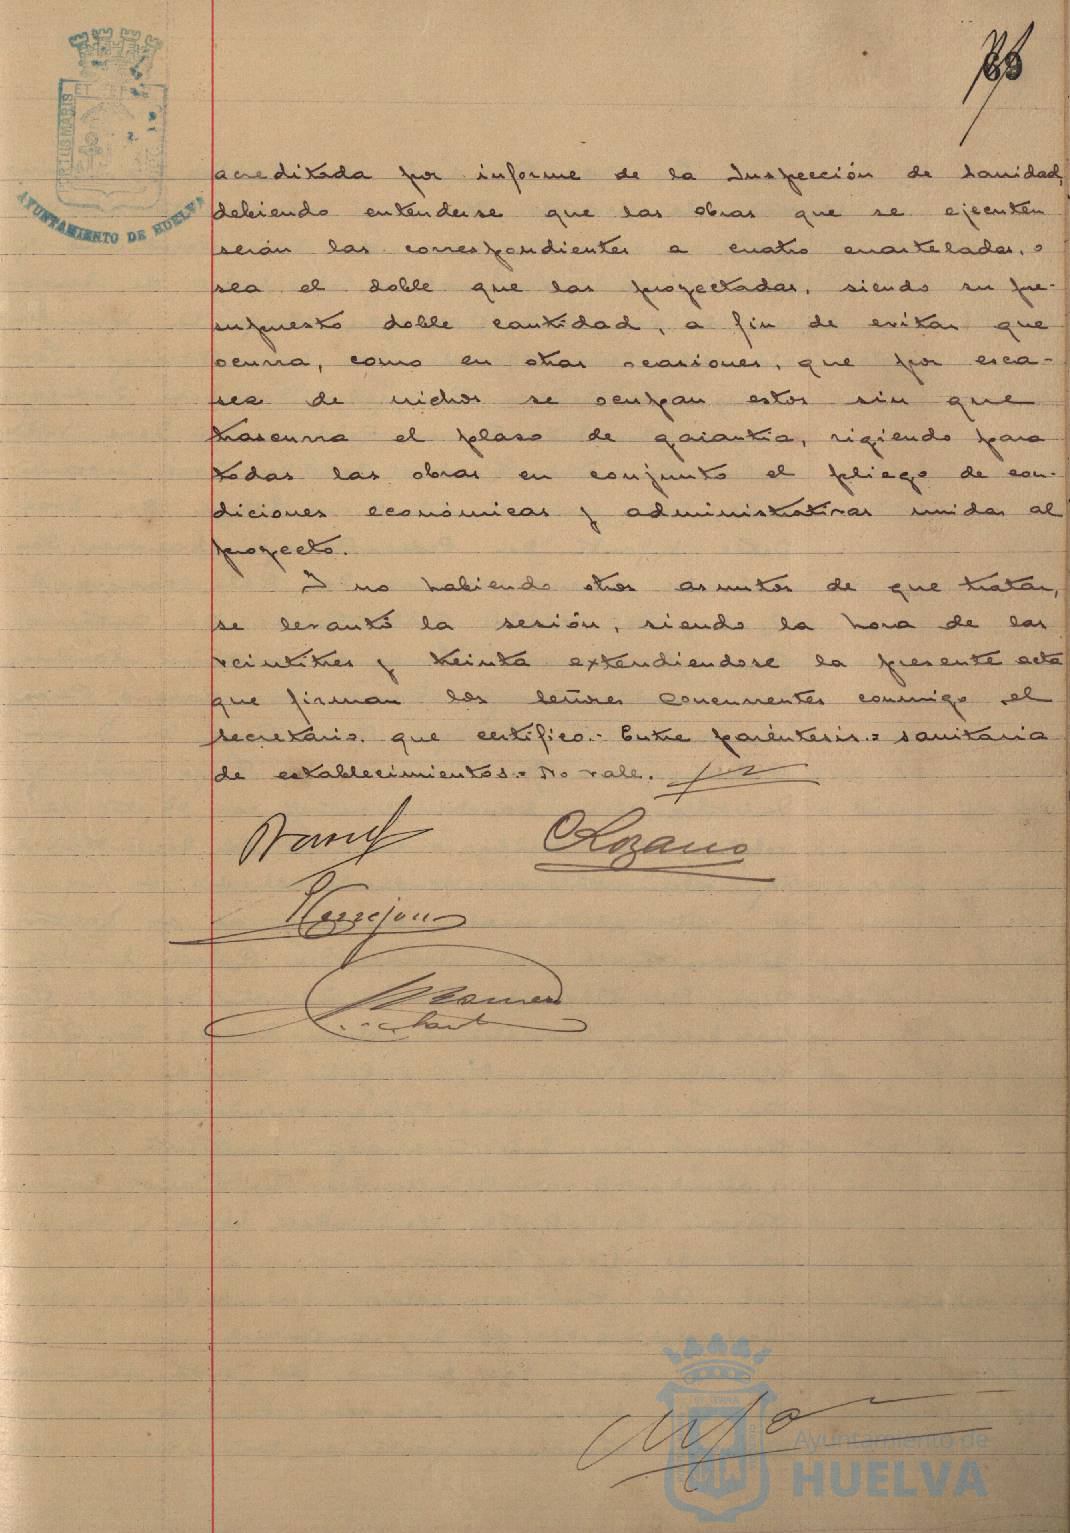 acreditada por informe de la Inspección de Sanidad,
debiendo entenderse que las obras que se ejecuten
serán las correspondientes a cuatro cuarteladas, o
sea el doble que las proyectadas, siendo su pre-
supuesto doble cantidad, a fin de evitar que
ocurra, como en otras ocasiones, que por esca-
sez de nichos se ocupan estos sin que
trascurra el plaso de garantia, rigiendo para
todas las obras en conjunto el pliego de con-
diciones económicas y administrativas unidas al
proyecto.
Y no habiendo otros asuntos de que tratar,
se levantó la sesión, siendo la hora de las
veintitres y treinta extendiendose la presente acta
que firman los señores concurrentes conmigo el
secretario. que certifico.- Entre paréntesis.= sanitaria
de establecimientos.= No vale.
Lozano
AYUNTAMIENTO DE HUELVA
Ayuntamiento de
HUELVA